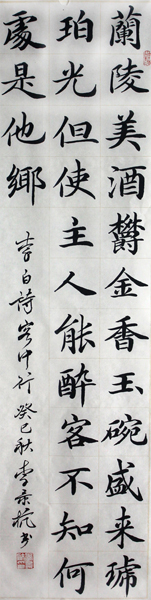 蘭陵美酒欝金香玉碗盛来琥
珀光但使主人能醉客不知何
處是他鄉
李白詩客中行 癸巳秋 李京杭书